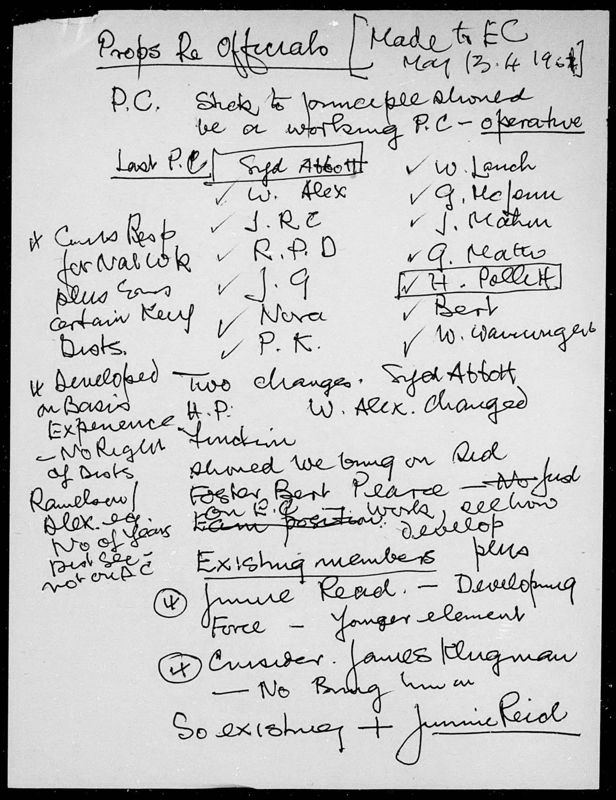 Props Re Officials [Made to EC
May 13.4 196 ]
P.C. Stick to principle should
be a working P.C - operative
Last P.C Syd Abbott
✓ W. Alex
✓ J. R C
✓ R. P. D
✓ J. G
✓ Nora
✓ P. K.
✓ W. Lauch
✓ G. McLennan
✓ J. Mahon
✓ G. Matthews
✓ H. Pollitt
✓ Bert
✓ W. Wainwright
* Comrs Resp
for Nat Wk
plus Secs
certain Key
Dists.
* Developed
on Basis
Experience
- No Right
of Dists
Ramelson /
Alex. eg
No of Years
Dist Sec -
not on P.C
Two changes. Syd Abbott
H. P. W. Alex. Changed
function
Should we bring on Sid
Foster, Bert Pearce - No just
on E.C - work, see how
Exam position. develop
Existing members plus
Jimmie Reid. - Developing
Force - Yonger element
Consider. James Klugman
- No Bring him on
So existing + Jimmie Reid